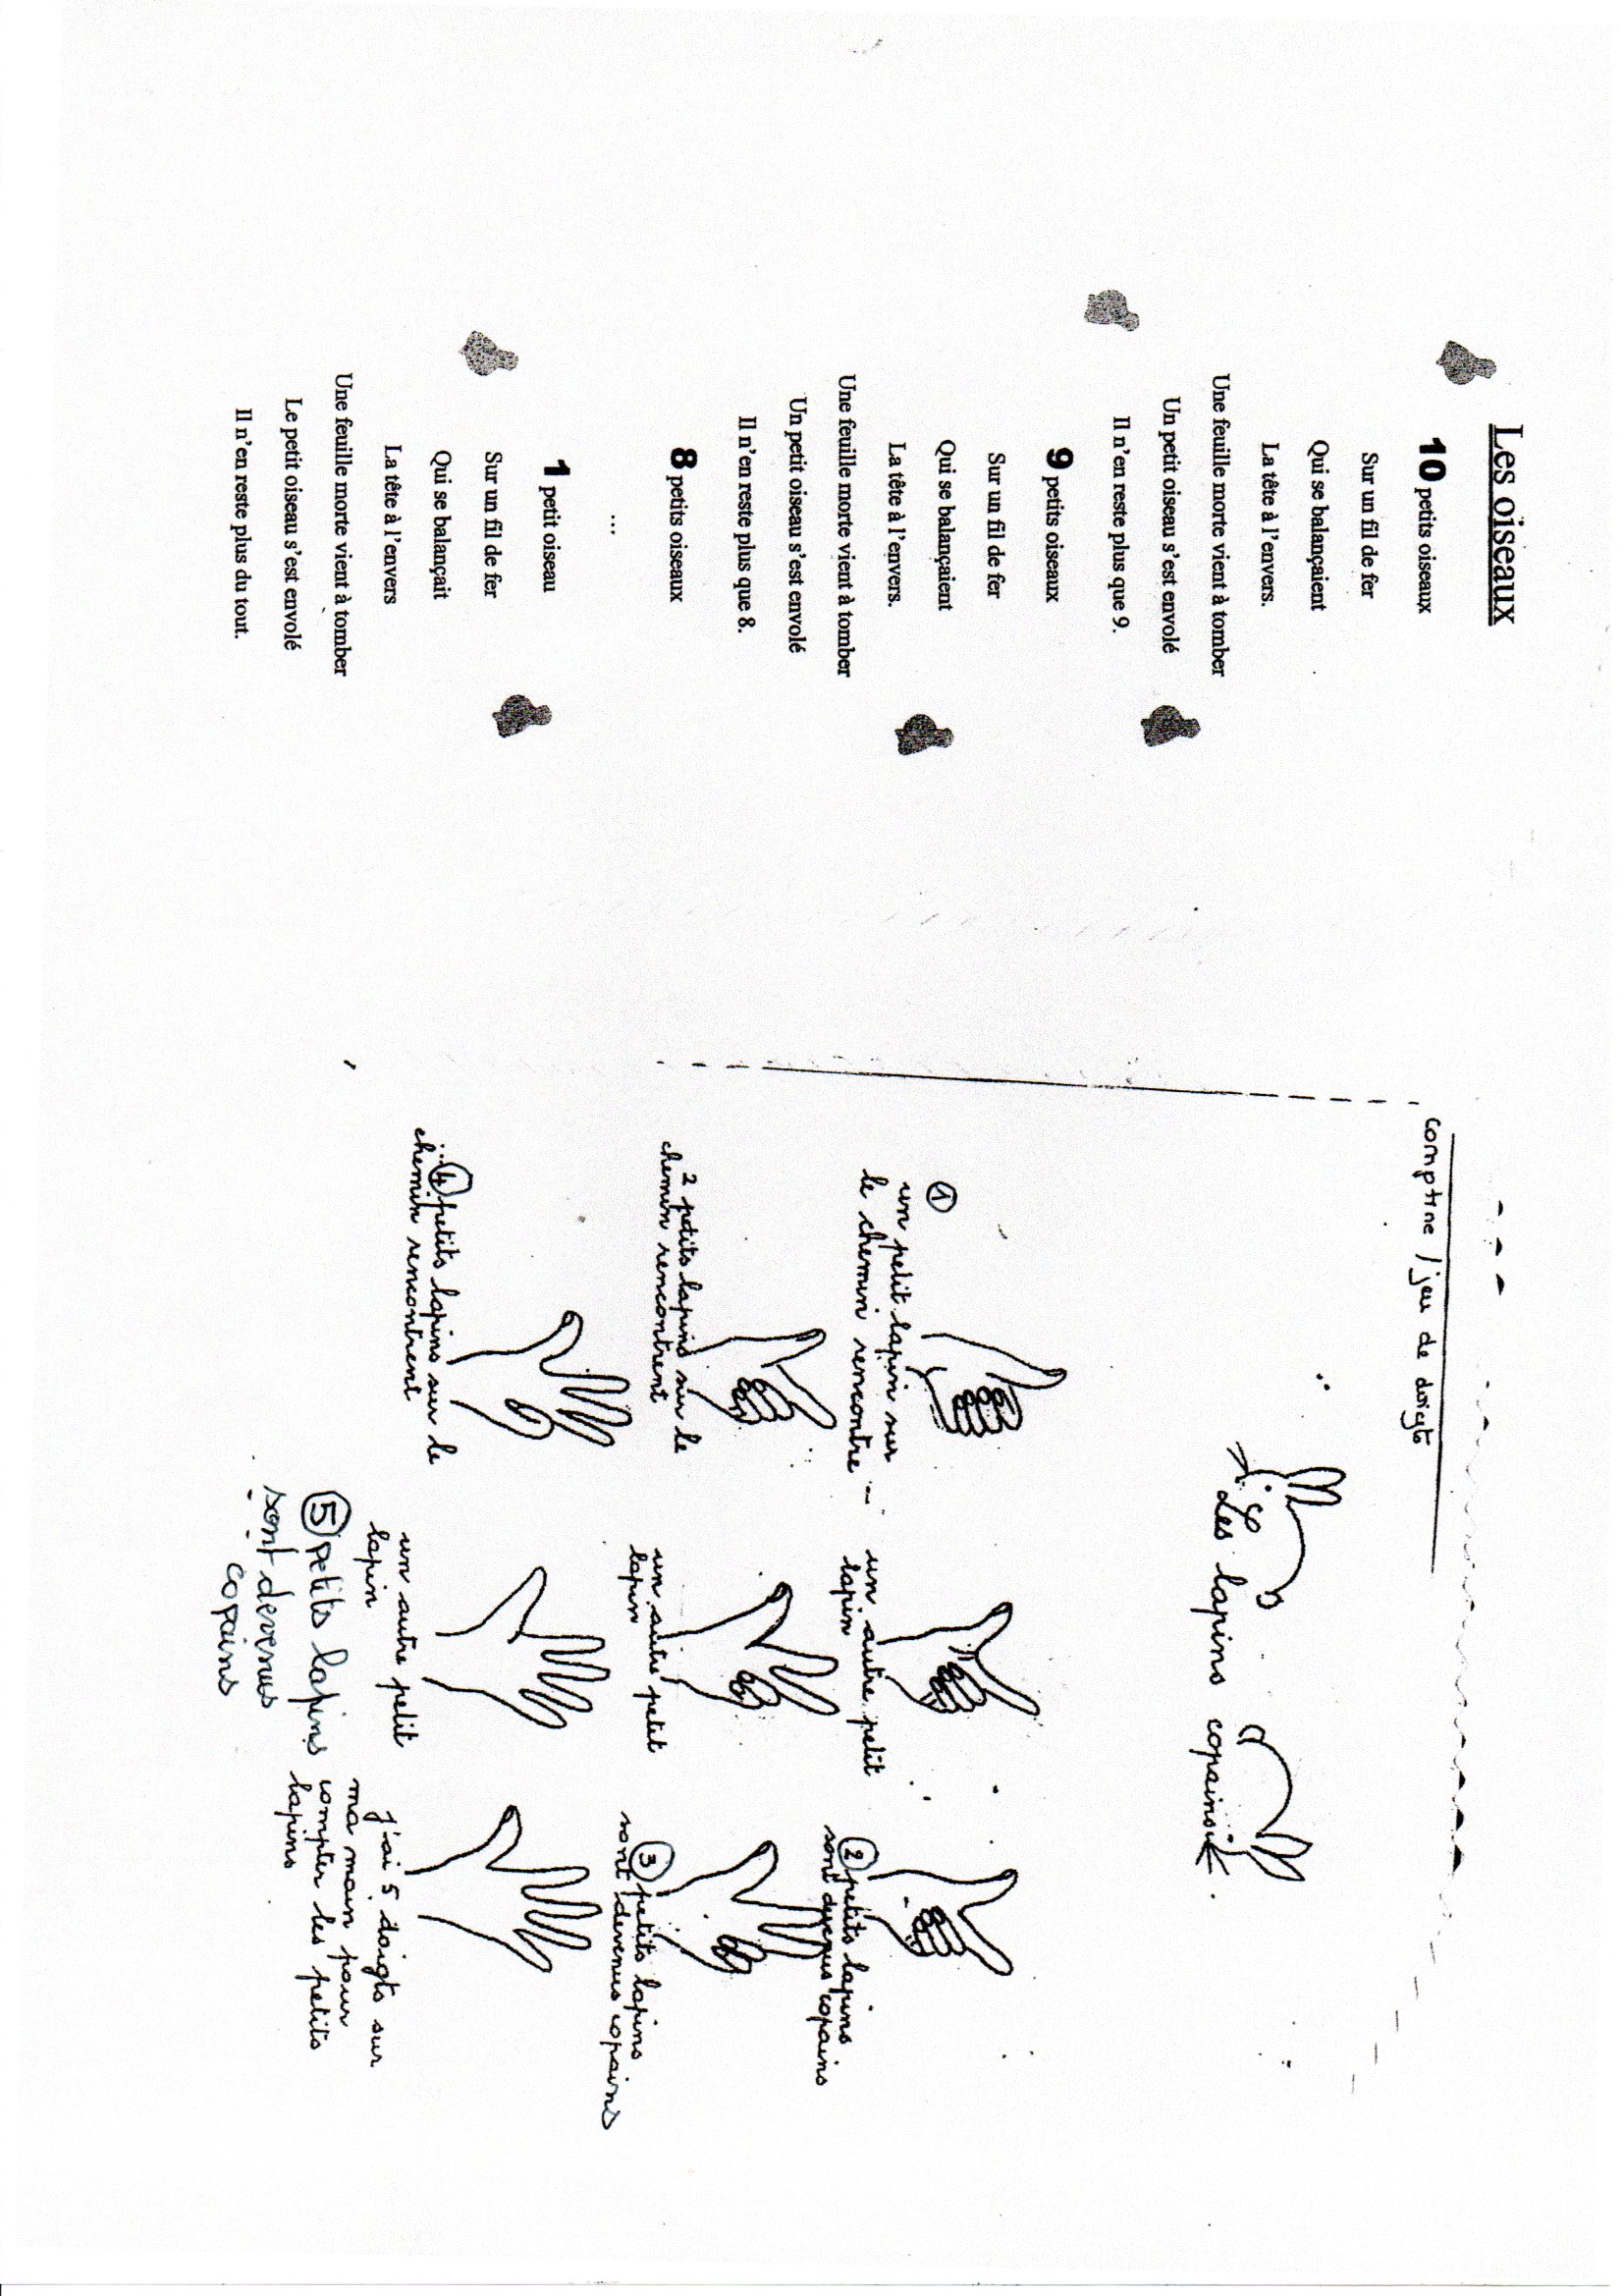 Les oiseaux
10 petits oiseaux
Sur un fil de fer
Qui se balançaient
La tête à l'envers.
Une feuille morte vient à tomber
Un petit oiseau s'est envolé
Il n'en reste plus que 9.
9 petits oiseaux
Sur un fil de fer
Qui se balançaient
La tête à l'envers.
Une feuille morte vient à tomber
Un petit oiseau s'est envolé
Il n'en reste plus que 8.
8 petits oiseaux
...
1 petit oiseau
Sur un fil de fer
Qui se balançait
La tête à l'envers
Une feuille morte vient à tomber
Le petit oiseau s'est envolé
Il n'en reste plus du tout.
comptine / jeu de doigts
Les lapins copains
1
un petit lapin sur
le chemin rencontre
un autre petit
lapin
2 petits lapins
sont devenus copains
2 petits lapins sur le
chemin rencontrent
un autre petit
lapin
3 petits lapins
sont devenus copains
4 petits lapins sur le
chemin rencontrent
un autre petit
lapin
5 petits lapins
sont devenus
copains
j'ai 5 doigts sur
ma main pour
compter les petits
lapins